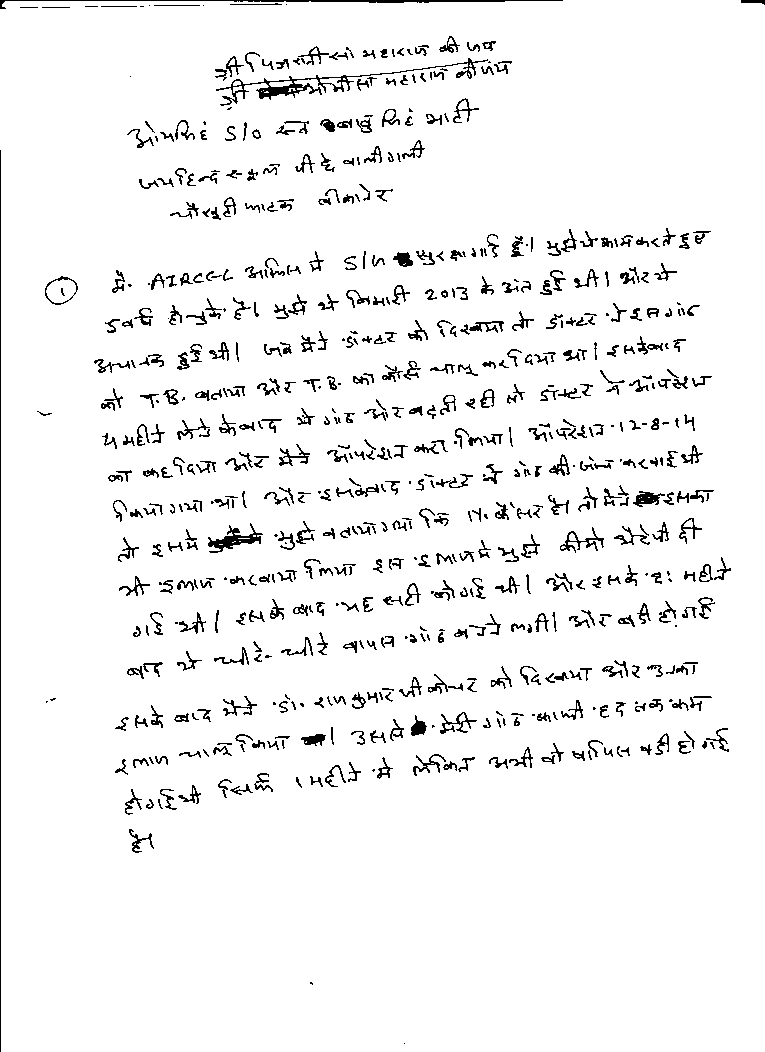 श्री पिजरासी सा महाराज की जय
श्री भोमीसा महाराज की जय
ओमसिंह S/O बाबु सिंह भाटी
जयहिन्द स्कूल पीछे वाली गली
चौखुटी फाटक बीकानेर
① मैं. AIRCEL ऑफिस मे S/G सुरक्षा गार्ड हूँ। मुझे ये काम करते हुए
5 वर्ष हो चुके है। मुझे ये बिमारी 2013 के अंत हुई थी। और ये
अचानक हुई थी। जब मैंने डॉक्टर को दिखाया तो डॉक्टर ने इस गांठ
को T.B. बताया और T.B. का कोर्स चालू कर दिया था। इसके बाद
4 महीने लेने के बाद ये गांठ ओर बढ़ती रही तो डॉक्टर ने ऑपरेशन
का कह दिया और मैंने ऑपरेशन करा लिया। ऑपरेशन 12-8-14
किया गया था। और इसके बाद डॉक्टर ने गांठ की जांच करवाई थी
तो इसमे मुझे बताया गया कि 1% कैंसर है। तो मैंने इसका
भी इलाज करवाया लिया इस इलाज मे मुझे कीमो थैरेपी दी
गई थी। इसके बाद यह सही हो गई थी। और इसके छः महीने
बाद ये धीरे-धीरे वापस गांठ बनने लगी। और बडी हो गई
इसके बाद मैंने डॉ. राजकुमार जी कोचर को दिखाया और उनका
इलाज चालू किया। उससे मेरी गांठ काफी हद तक कम
हो गई थी सिर्फ 1 महीने मे लेकिन अभी वो वापिस बडी हो गई
है।